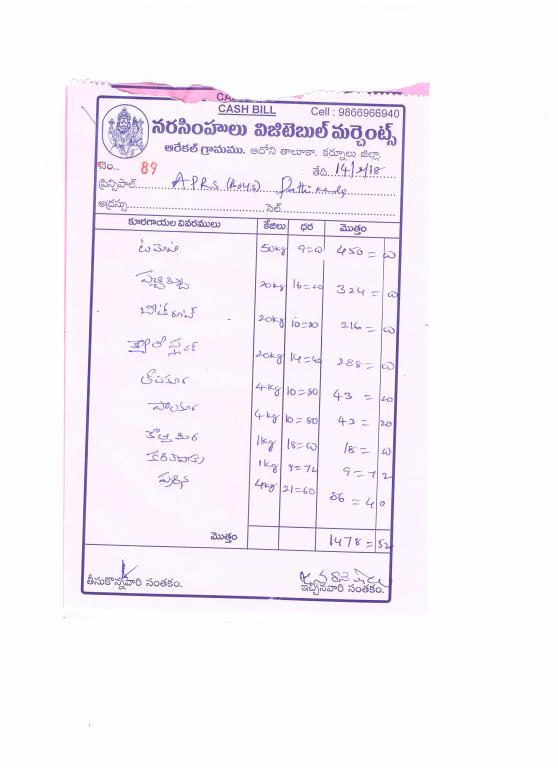 CASH BILL
Cell : 9866966940
నరసింహులు విజిటెబుల్ మర్చెంట్స్
ఆరేకల్ గ్రామము. ఆదోని తాలూకా. కర్నూలు జిల్లా.
నెం... 89 తేది. 14/2/18
ప్రిన్సిపాల్ APRS (Boys)
అడ్రస్సు సెల్
కూరగాయల వివరములు కేజీలు ధర మొత్తం
టమాట 50kg 9=00 450=00
20kg 16=20 324=00
బీట్‌రూట్ 20kg 10=80 216=00
20kg 14=40 288=00
4kg 10=80 43=20
పాలకూర 4kg 10=80 43=20
కొత్తిమీర 1kg 18=00 18=00
కరివేపాకు 1kg 9=72 9=72
పుదీన 4kg 21=60 86=40
మొత్తం 1478=52
తీసుకొన్నవారి సంతకం. ఇచ్చినవారి సంతకం.